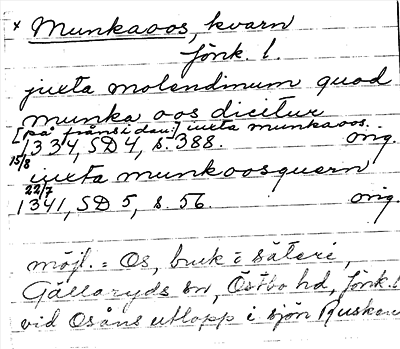 × Munkaoos, kvarn
Jönk. l.
juxta molendinum quod
munka oos dicitur
[på frånsidan] juxta munkaoos.
15/8 1334, SD 4, s. 388. orig.
juxta munkoosquern
22/7 1341, SD 5, s. 56. orig.
möjl. = Os, bruk o säteri,
Gällaryds sn, Östbo hd, Jönk. l
vid Osåns utlopp i sjön Rusken